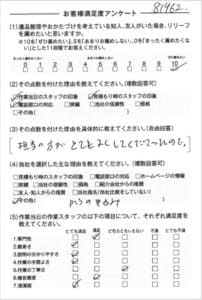 81962
お客様満足度アンケート
(1)遺品整理やおかたづけを考えている知人、友人がいた場合、リリーフ
を薦めたいと思いますか。
※10を「ぜひ薦めたい」、5を「あまりお薦めしない」、0を「まったく薦めたくな
い」とした11段階でお答えください。
0 1 2 3 4 5 6 7 8 9 10
(2)その点数を付けた理由を教えてください。(複数回答可)
作業当日のスタッフの印象 見積もり時のスタッフの印象 価格
電話窓口の対応 実績 当社の信頼性 価格
その他(
(3)その点数を付けた理由を具体的に教えてください。(自由回答)
担当の方がとてもよくしてくださったので。
(4)当社を選択した主な理由を教えてください。(複数回答可)
見積もり時のスタッフの印象 電話窓口の対応 ホームページの情報
実績 当社の信頼性 価格 紹介会社からの推薦
友人・知人からの推薦
その他(
(5)作業当日の作業スタッフの以下の項目について、それぞれ満足度を
教えてください。
とても満足 満足 どちらともいえない 不満 とても不満
1.専門性
2.親身さ
3.説明の分かりやすさ
4.作業の手際よさ
5.作業の丁寧さ
6.報告態度
7.清潔感